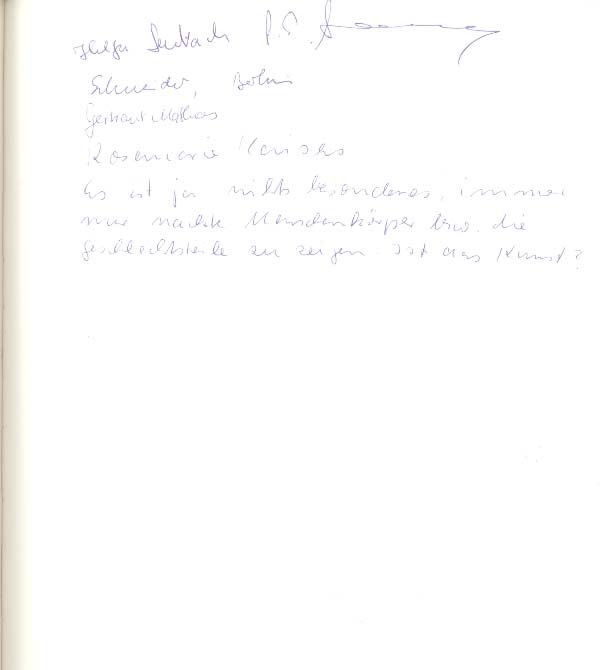 Helga
Schneider, Berlin
Gerhard Mathias
Rosemarie
Es ist ja nichts besonderes, immer
nur nackte Menschenkörper bzw. die
geschlechtsteile zu zeigen. Ist das Kunst?